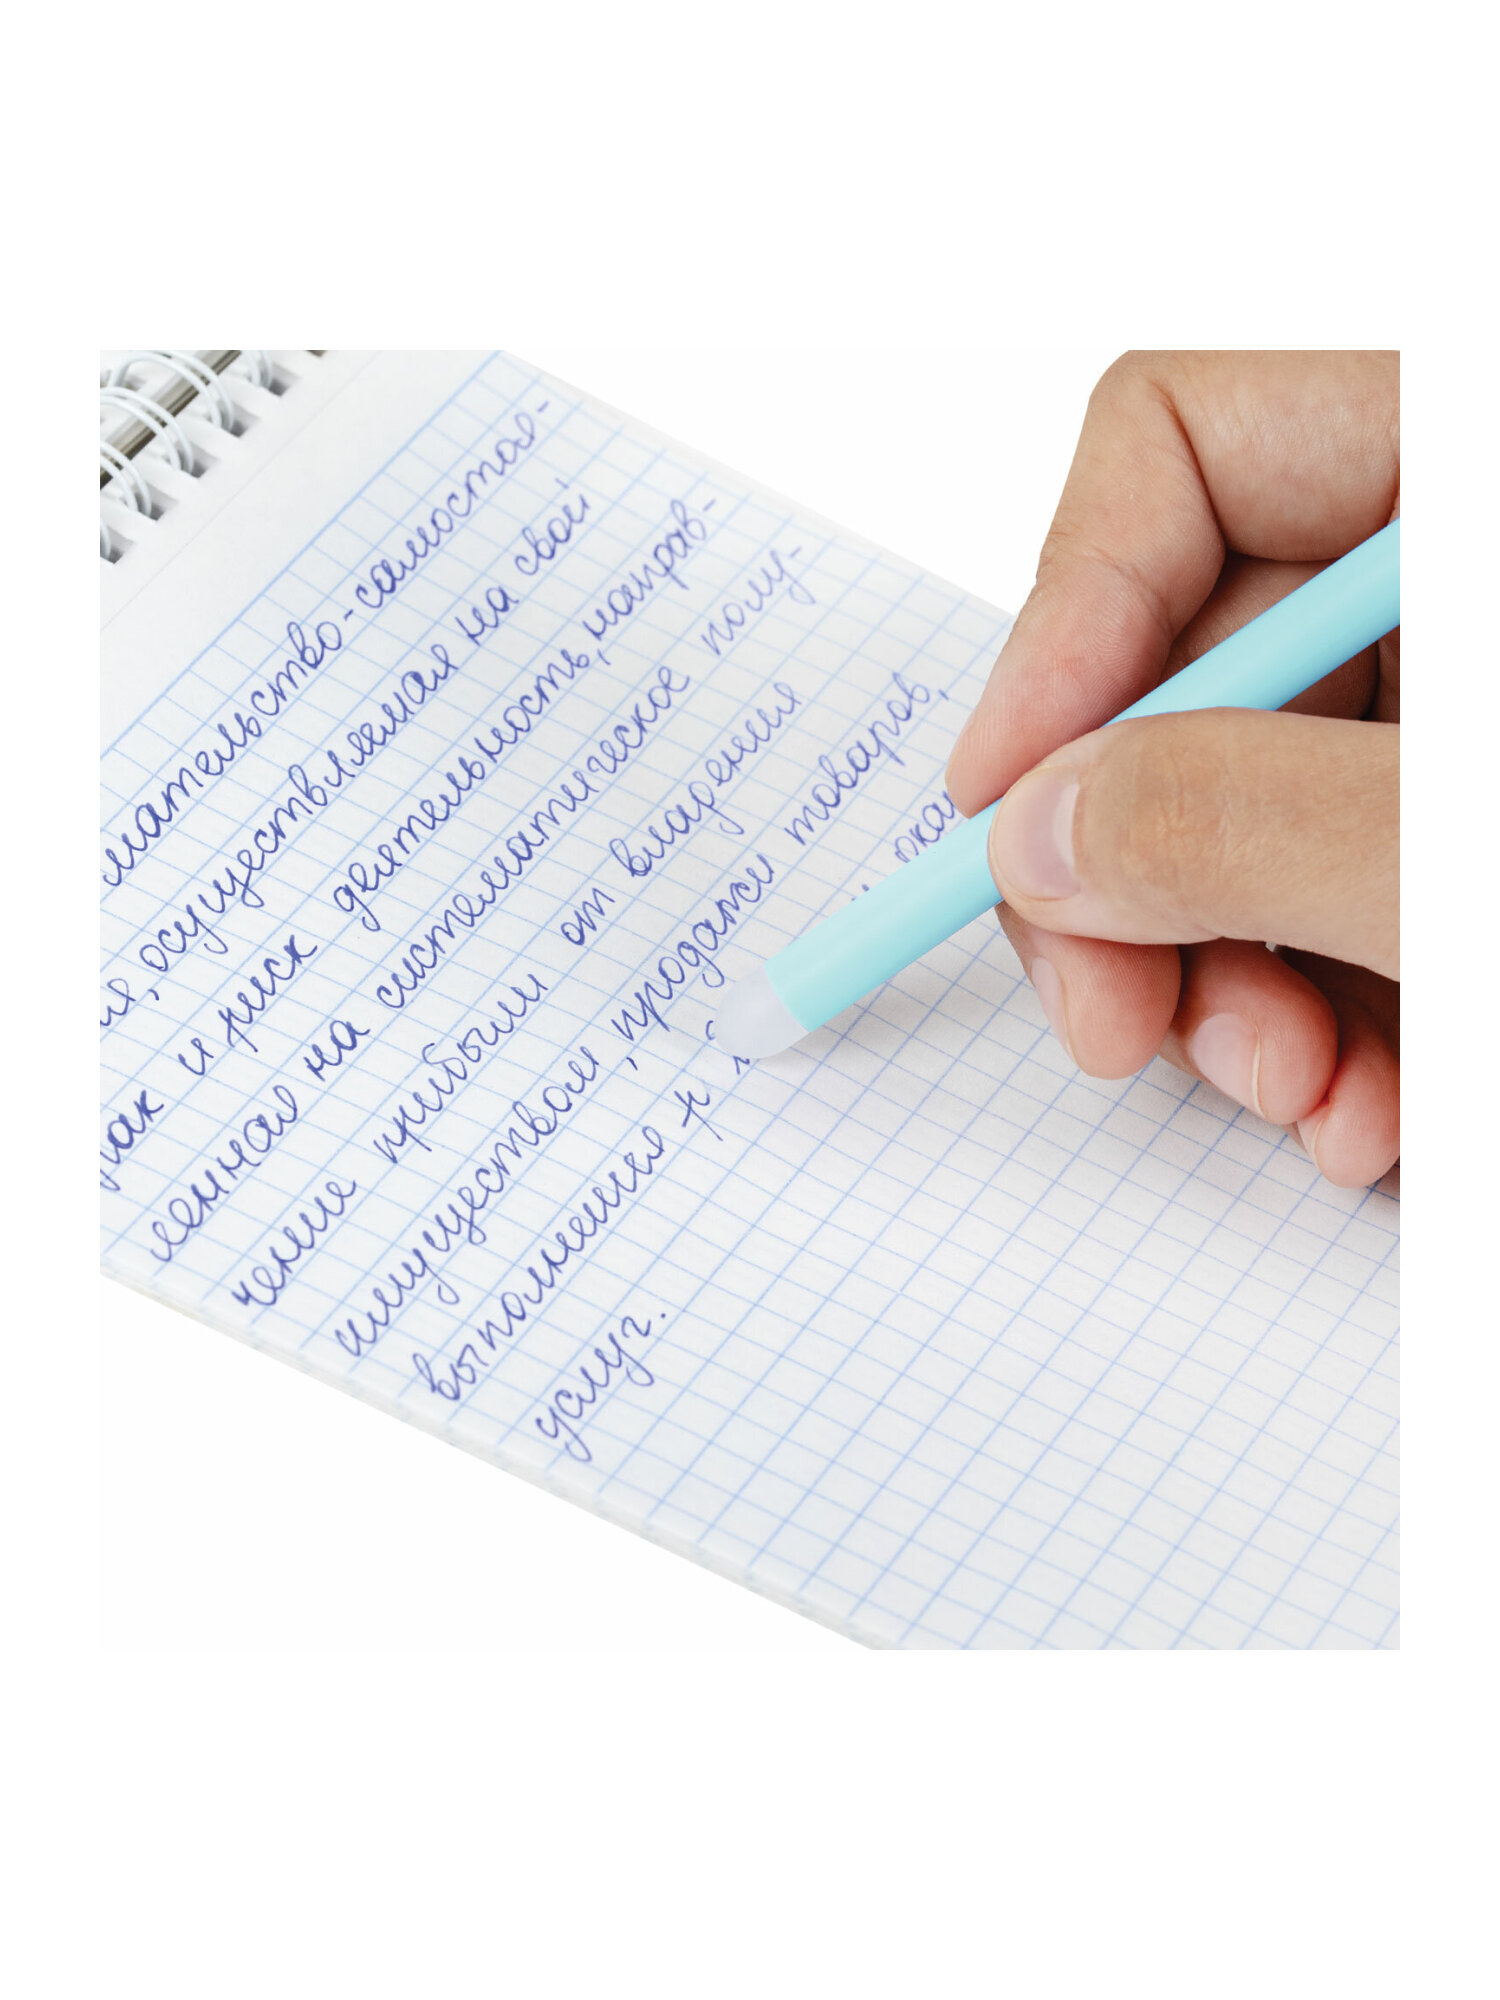 мательство-самостоя-
ия, осуществляемая на свой
рак и риск деятельность, направ-
ленная на систематическое полу-
чение прибыли от владения
имуществом, продажи товаров,
выполнения р ока
услуг.